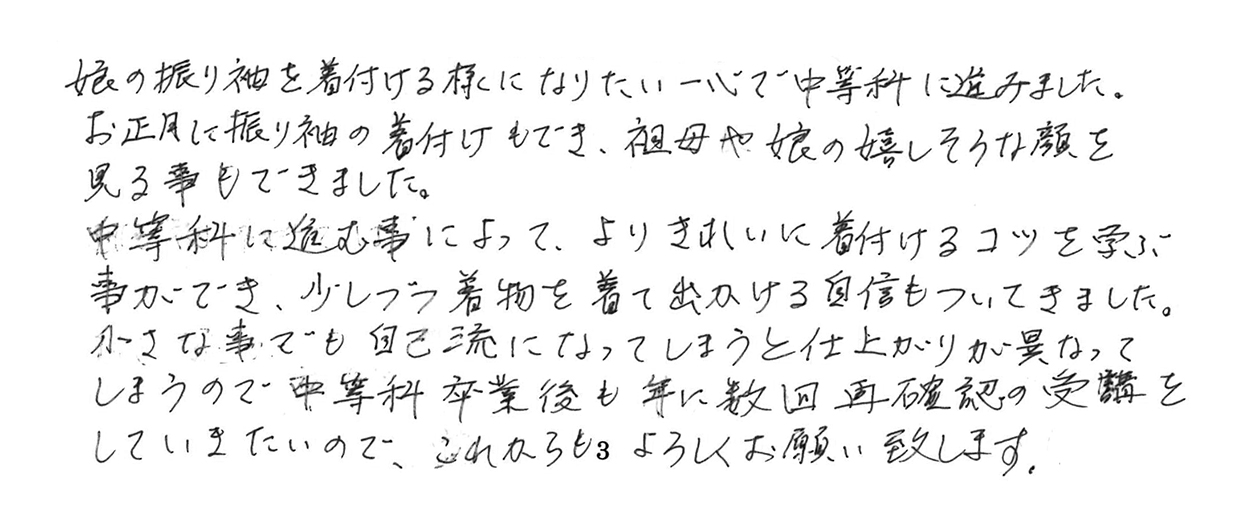 娘の振り袖を着付ける様になりたい一心で中等科に進みました。
お正月に振り袖の着付けもでき、祖母や娘の嬉しそうな顔を
見る事もできました。
中等科に進む事によって、よりきれいに着付けるコツを学ぶ
事ができ、少しづつ着物を着て出かける自信もついてきました。
小さな事でも自己流になってしまうと仕上がりが異なって
しまうので中等科卒業後も年に数回再確認の受講を
していきたいので、これからも3よろしくお願い致します。